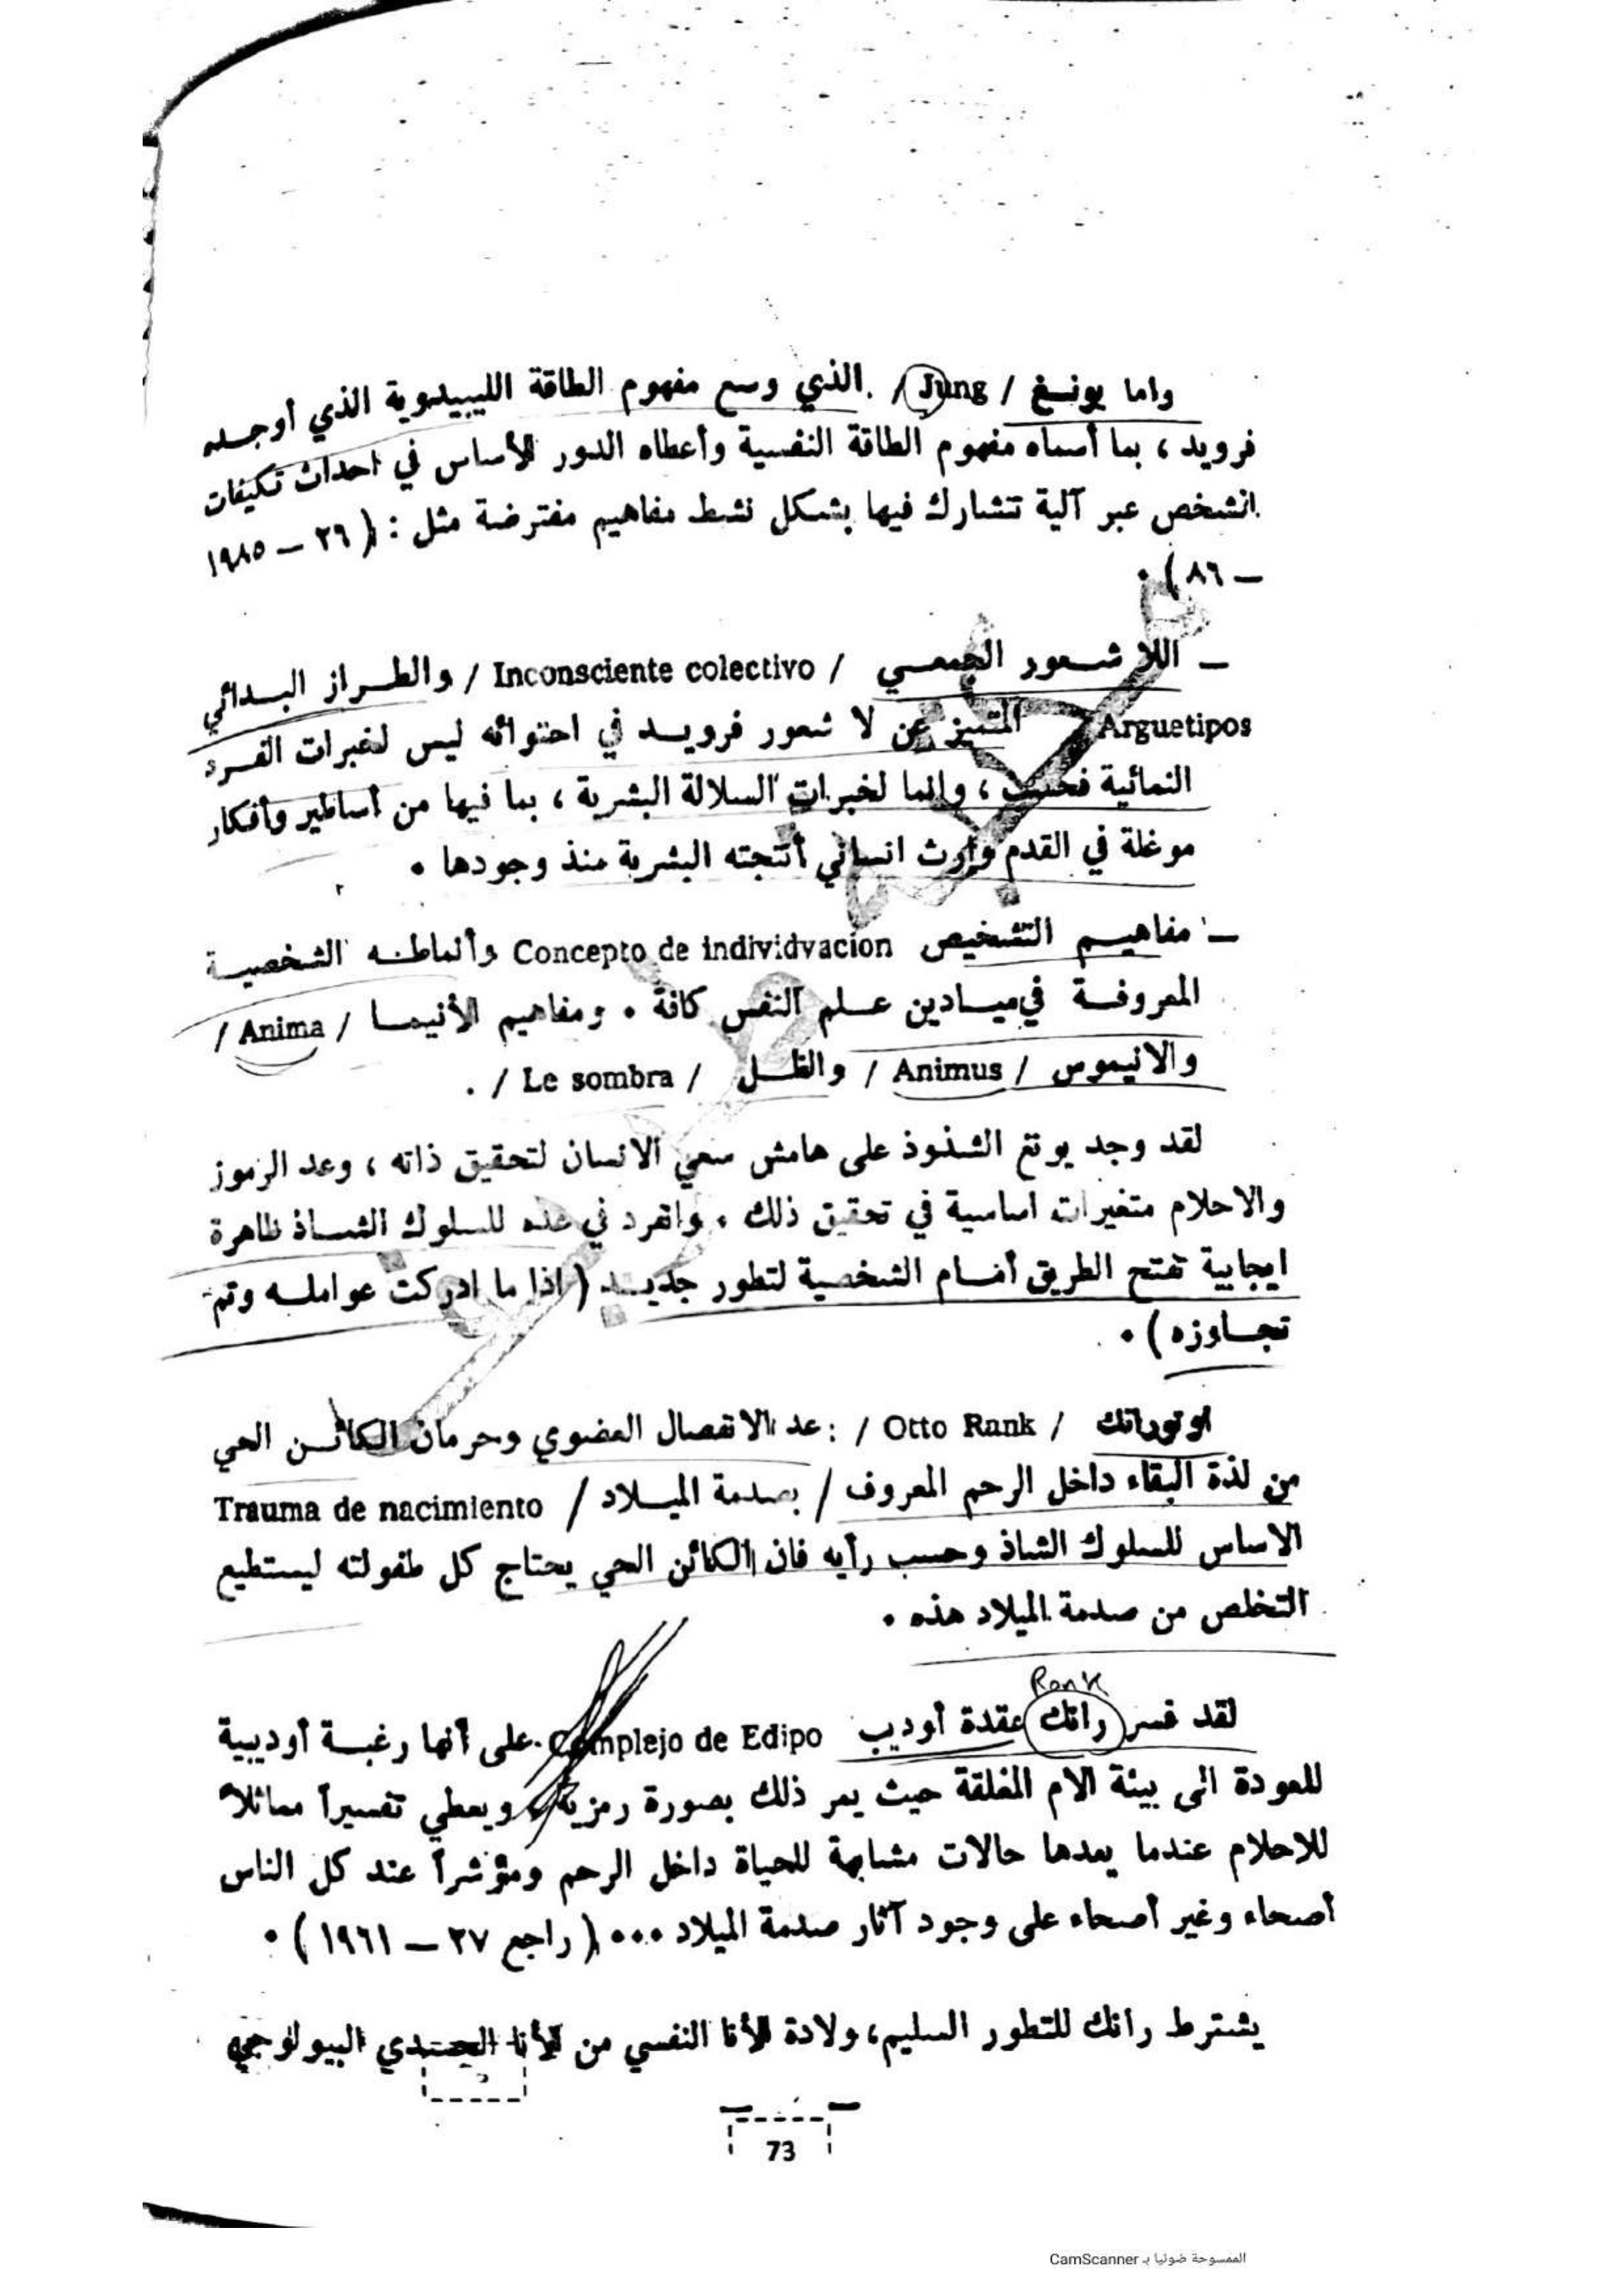 واما يونغ / Jung / الذي وسع مفهوم الطاقة الليبيدوية الذي أوجده
فرويد ، بما أسماه مفهوم الطاقة النفسية وأعطاه الدور الأساس في احداث تكيفات
الشخص عبر آلية تشارك فيها بشكل نشط مفاهيم مفترضة مثل : ( ٢٦ – ١٩٨٥
– ٨٦ ) .
– اللا شعور الجمعي / Inconsciente colectivo / والطراز البدائي
Arguetipos المتميز عن لا شعور فرويد في احتوائه ليس لخبرات الفرد
النمائية فحسب ، وانما لخبرات السلالة البشرية ، بما فيها من أساطير وأفكار
موغلة في القدم وارث انساني أنتجته البشرية منذ وجودها .
– مفاهيم التشخيص Concepto de individvacion وأنماطه الشخصية
المعروفة في ميادين علم النفس كافة . ومفاهيم الأنيما / Anima /
والانيموس / Animus / والظل / Le sombra / .
لقد وجد يونغ الشذوذ على هامش سعي الانسان لتحقيق ذاته ، وعد الرموز
والاحلام متغيرات اساسية في تحقيق ذلك . وانفرد في عده للسلوك الشاذ ظاهرة
ايجابية تفتح الطريق أمام الشخصية لتطور جديد ( اذا ما ادركت عوامله وتم
تجاوزه ) .
اوتورانك / Otto Rank / : عد الانفصال العضوي وحرمان الكائن الحي
من لذة البقاء داخل الرحم المعروف / بصدمة الميلاد / Trauma de nacimiento
الاساس للسلوك الشاذ وحسب رأيه فان الكائن الحي يحتاج كل طفولته ليستطيع
التخلص من صدمة الميلاد هذه .
Rank
لقد فسر رانك عقدة أوديب Complejo de Edipo على أنها رغبة أوديبية
للعودة الى بيئة الام المغلقة حيث يمر ذلك بصورة رمزية ، ويعطي تفسيراً مماثلاً
للاحلام عندما يعدها حالات مشابهة للحياة داخل الرحم ومؤشراً عند كل الناس
أصحاء وغير أصحاء على وجود آثار صدمة الميلاد ... ( راجع ٢٧ – ١٩٦١ ) .
يشترط رانك للتطور السليم، ولادة الأنا النفسي من الأنا الجسدي البيولوجي
73
الممسوحة ضوئيا بـ CamScanner